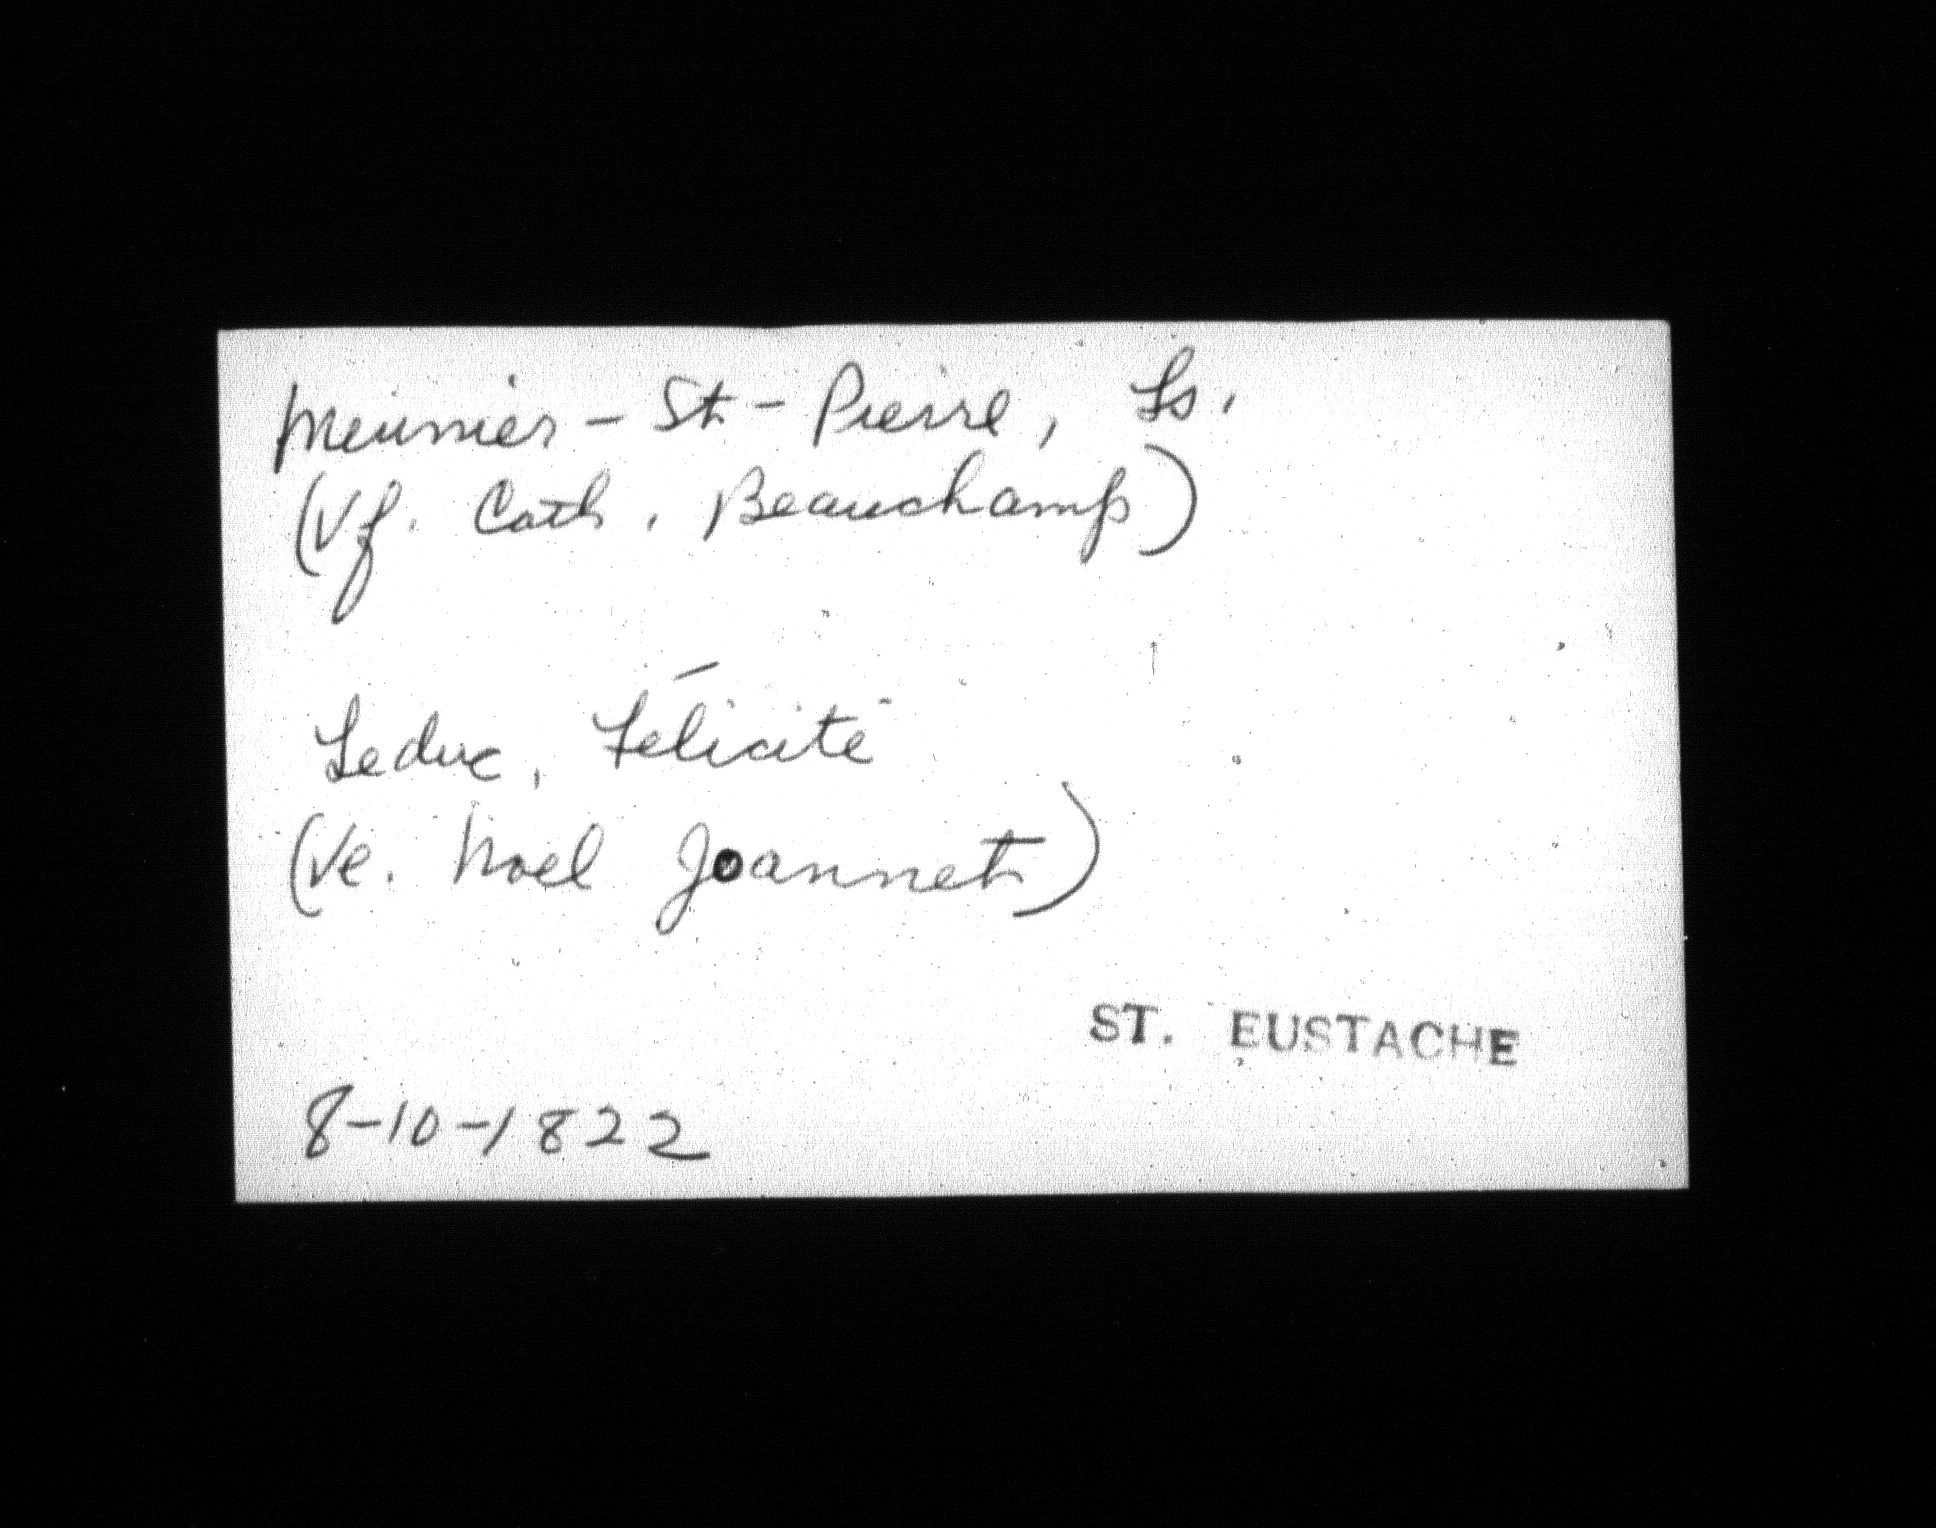 Meunier - St - Pierre, Ls.
(Vf. Cath. Beauchamp)
Leduc, Félicité
(Ve. Noel Joannet)
ST. EUSTACHE
8-10-1822